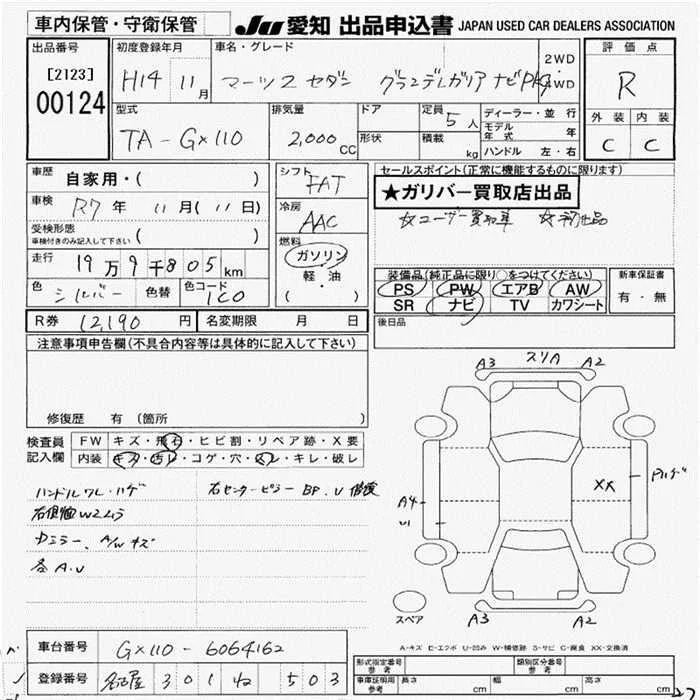 車内保管・守衛保管
JU 愛知 出品申込書 JAPAN USED CAR DEALERS ASSOCIATION
出品番号
[2123]
00124
初度登録年月
H14 11月
車名・グレード
マークⅡ セダン グランデレガリア ナビPKG
2WD
4WD
評価点
R
外装 内装
C C
型式
TA-GX110
排気量
2,000 CC
ドア
形状
定員 5人
積載 kg
ディーラー・並行
モデル年式 年
ハンドル 左・右
車歴 自家用・( )
車検 R7年 11月(11日)
受検形態
車検付きのみ記入して下さい ( )
走行 19万9千805km
色 シルバー 色替 色コード 1C0
シフト
FAT
冷房
AAC
燃料
ガソリン
軽・油
( )
セールスポイント(正常に機能するものに限ります)
★ガリバー買取店出品
☆ユーザー買取車 ☆初出品
装備品(純正品に限り○をつけてください)
PS PW エアB AW
SR ナビ TV カワシート
新車保証書
有・無
R券 12,190円 名変期限 月 日
後日品
注意事項申告欄(不具合内容等は具体的に記入して下さい)
修復歴 有 (箇所 )
検査員記入欄
FW キズ・飛石・ヒビ割・リペア跡・X要
内装 キズ・汚レ・コゲ・穴・スレ・キレ・破レ
ハンドルワレ・ハゲ
右センターピラー BP.U 修復
右側面W2ムラ
カミラー、A/Wキズ
各A.U
A3 スリA A2
A4
U
XX
Pハゲ
A3 A2
スペア
A-キズ E-エクボ U-凹み W-補修跡 S-サビ C-腐食 XX-交換済
車台番号 GX110-6064162
登録番号 名古屋 301 ね 503
形式指定番号 参考
類別区分番号 参考
車庫証明用 参考 長さ cm 幅 cm 高さ cm